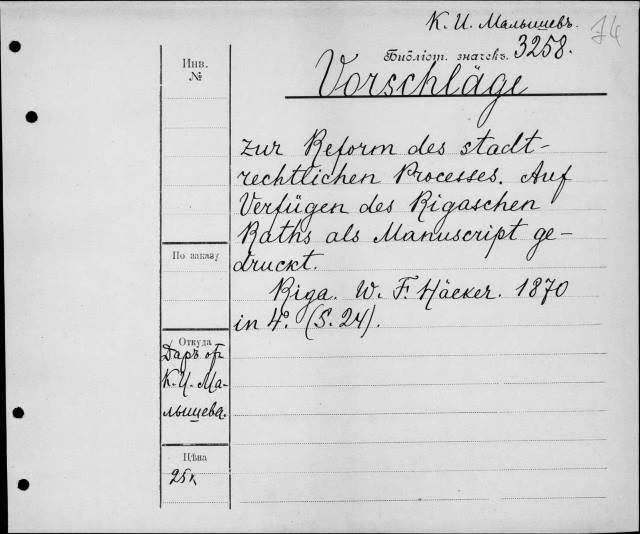 К. И. Малышевъ.
74
Библіот. значекъ. 3258.
Инв.
№
Vorschläge
zur Reform des stadt-
rechtlichen Processes. Auf
Verfügen des Rigaschen
Raths als Manuscript ge-
druckt.
По заказу
Riga. W. F. Häcker. 1870
in 4º. (S. 24).
Откуда
Даръ от
К. И. Ма-
лышева.
Цѣна
25к